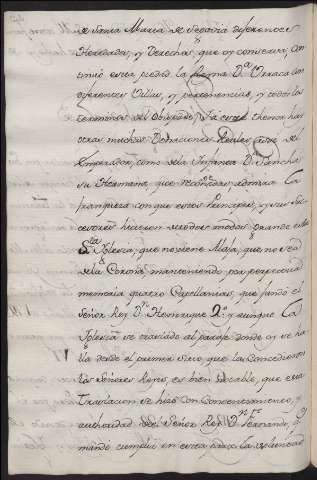 de Santa Maria de Segovia diferentes
Heredades, y Derechos, que oy conserva, con
tinuó esta piedad la Reyna D.ª Urraca con
diferentes Villas, y pertenencias, y todos los
terminos del Obispado, y a este thenor hay
otras muchas Donaciones Reales, assi del
Emperador, como de la Infanta D.ª Sancha
su Hermana, que reconocidas, admira la
franqueza con que estos Principes, y sus su
cesores hicieron de todos modos grande esta
S.ta Iglesia, que no tiene Alaja, que no sea
de la Corona, manteniendo por perpetua
memoria quatro Capellanias, que fundó el
Señor Rey D.n Henrrique 2.º y aunque la
Iglesia se trasladó al parage donde oy se ha
lla desde el primer sitio, que la concedieron
los Señores Reyes, es bien notable, que esta
Traslacion se hizo con Consentimiento, y
authoridad del Señor Rey D.n Fernando,
mandó cumplir en esta parte la voluntad